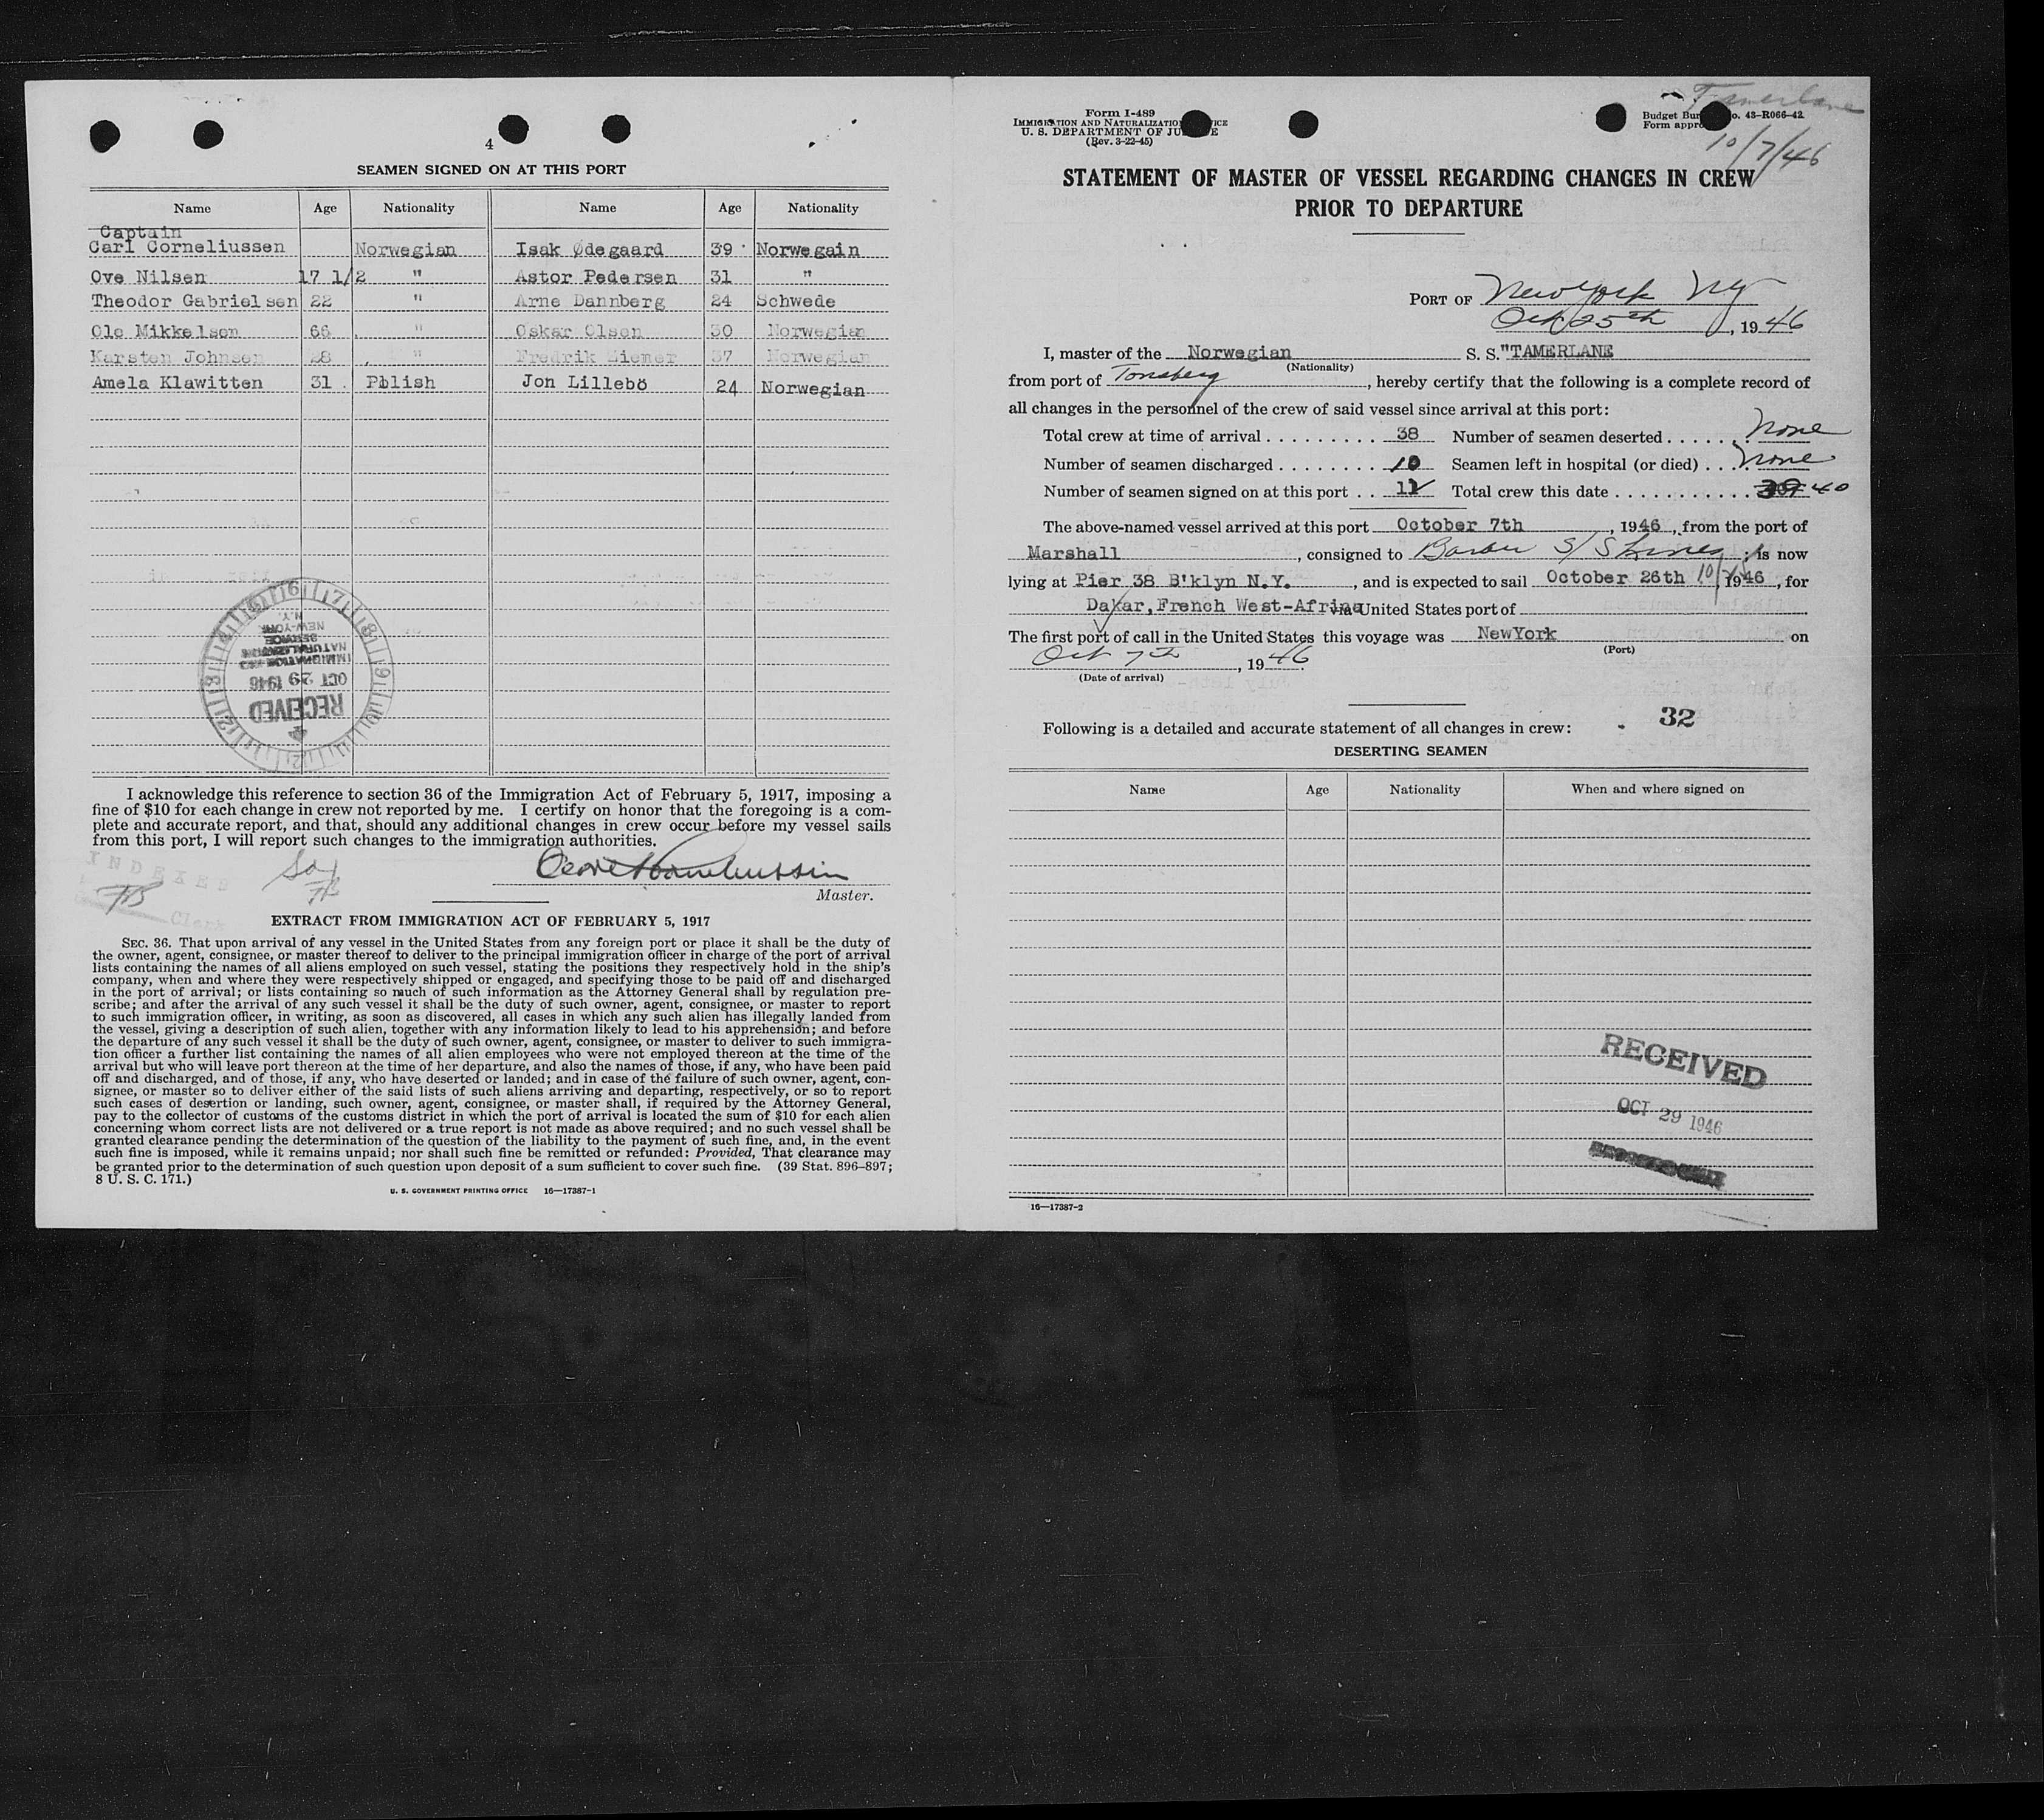 4
SEAMEN SIGNED ON AT THIS PORT
Name Age Nationality Name Age Nationality
Captain
Carl Corneliussen Norwegian Isak Ødegaard 39 Norwegain
Ove Nilsen 17 1/2 " Astor Pedersen 31 "
Theodor Gabrielsen 22 " Arne Dannberg 24 Schwede
Ole Mikkelsen 66 " Oskar Olsen 30 Norwegian
Karsten Johnsen 28 " Fredrik Ziemer 37 Norwegian
Amela Klawitten 31 Pblish Jon Lillebö 24 Norwegian
IMMIGRATION AND
NATURALIZATION
SERVICE
NEW-YORK
N.Y.
OCT 29 1946
RECEIVED
I acknowledge this reference to section 36 of the Immigration Act of February 5, 1917, imposing a
fine of $10 for each change in crew not reported by me. I certify on honor that the foregoing is a com-
plete and accurate report, and that, should any additional changes in crew occur before my vessel sails
from this port, I will report such changes to the immigration authorities.
INDEXED
FB
FB
Clerk
Master.
EXTRACT FROM IMMIGRATION ACT OF FEBRUARY 5, 1917
SEC. 36. That upon arrival of any vessel in the United States from any foreign port or place it shall be the duty of
the owner, agent, consignee, or master thereof to deliver to the principal immigration officer in charge of the port of arrival
lists containing the names of all aliens employed on such vessel, stating the positions they respectively hold in the ship's
company, when and where they were respectively shipped or engaged, and specifying those to be paid off and discharged
in the port of arrival; or lists containing so much of such information as the Attorney General shall by regulation pre-
scribe; and after the arrival of any such vessel it shall be the duty of such owner, agent, consignee, or master to report
to such immigration officer, in writing, as soon as discovered, all cases in which any such alien has illegally landed from
the vessel, giving a description of such alien, together with any information likely to lead to his apprehension; and before
the departure of any such vessel it shall be the duty of such owner, agent, consignee, or master to deliver to such immigra-
tion officer a further list containing the names of all alien employees who were not employed thereon at the time of the
arrival but who will leave port thereon at the time of her departure, and also the names of those, if any, who have been paid
off and discharged, and of those, if any, who have deserted or landed; and in case of the failure of such owner, agent, con-
signee, or master so to deliver either of the said lists of such aliens arriving and departing, respectively, or so to report
such cases of desertion or landing, such owner, agent, consignee, or master shall, if required by the Attorney General,
pay to the collector of customs of the customs district in which the port of arrival is located the sum of $10 for each alien
concerning whom correct lists are not delivered or a true report is not made as above required; and no such vessel shall be
granted clearance pending the determination of the question of the liability to the payment of such fine, and, in the event
such fine is imposed, while it remains unpaid; nor shall such fine be remitted or refunded: Provided, That clearance may
be granted prior to the determination of such question upon deposit of a sum sufficient to cover such fine. (39 Stat. 896-897;
8 U. S. C. 171.)
U. S. GOVERNMENT PRINTING OFFICE 16—17387-1
Tamerlane
10/7/46
Form I-489
IMMIGRATION AND NATURALIZATION
U. S. DEPARTMENT OF
(Rev. 3-22-45)
Budget o. 43-R066-42
Form
STATEMENT OF MASTER OF VESSEL REGARDING CHANGES IN CREW
PRIOR TO DEPARTURE
PORT OF New York NY
Oct 25th, 1946
I, master of the Norwegian S. S. "TAMERLANE
(Nationality)
from port of Tonsberg, hereby certify that the following is a complete record of
all changes in the personnel of the crew of said vessel since arrival at this port:
Total crew at time of arrival 38 Number of seamen deserted None
Number of seamen discharged 10 Seamen left in hospital (or died) None
Number of seamen signed on at this port 11 Total crew this date 39 40
The above-named vessel arrived at this port October 7th, 1946, from the port of
Marshall, consigned to Barber S/S Lines; is now
lying at Pier 38 B'klyn N.Y., and is expected to sail October 26th 1946, for
Dakar, French West-Africa via United States port of
The first port of call in the United States this voyage was NewYork on
(Port)
Oct 7th, 1946
(Date of arrival)
Following is a detailed and accurate statement of all changes in crew: 32
DESERTING SEAMEN
Name Age Nationality When and where signed on
RECEIVED
OCT 29 1946
16—17387-2